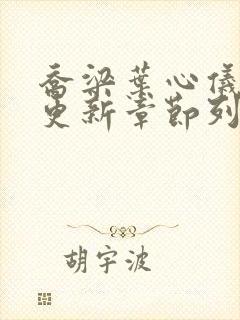 乔梁叶心仪
更新章节列
胡宇波